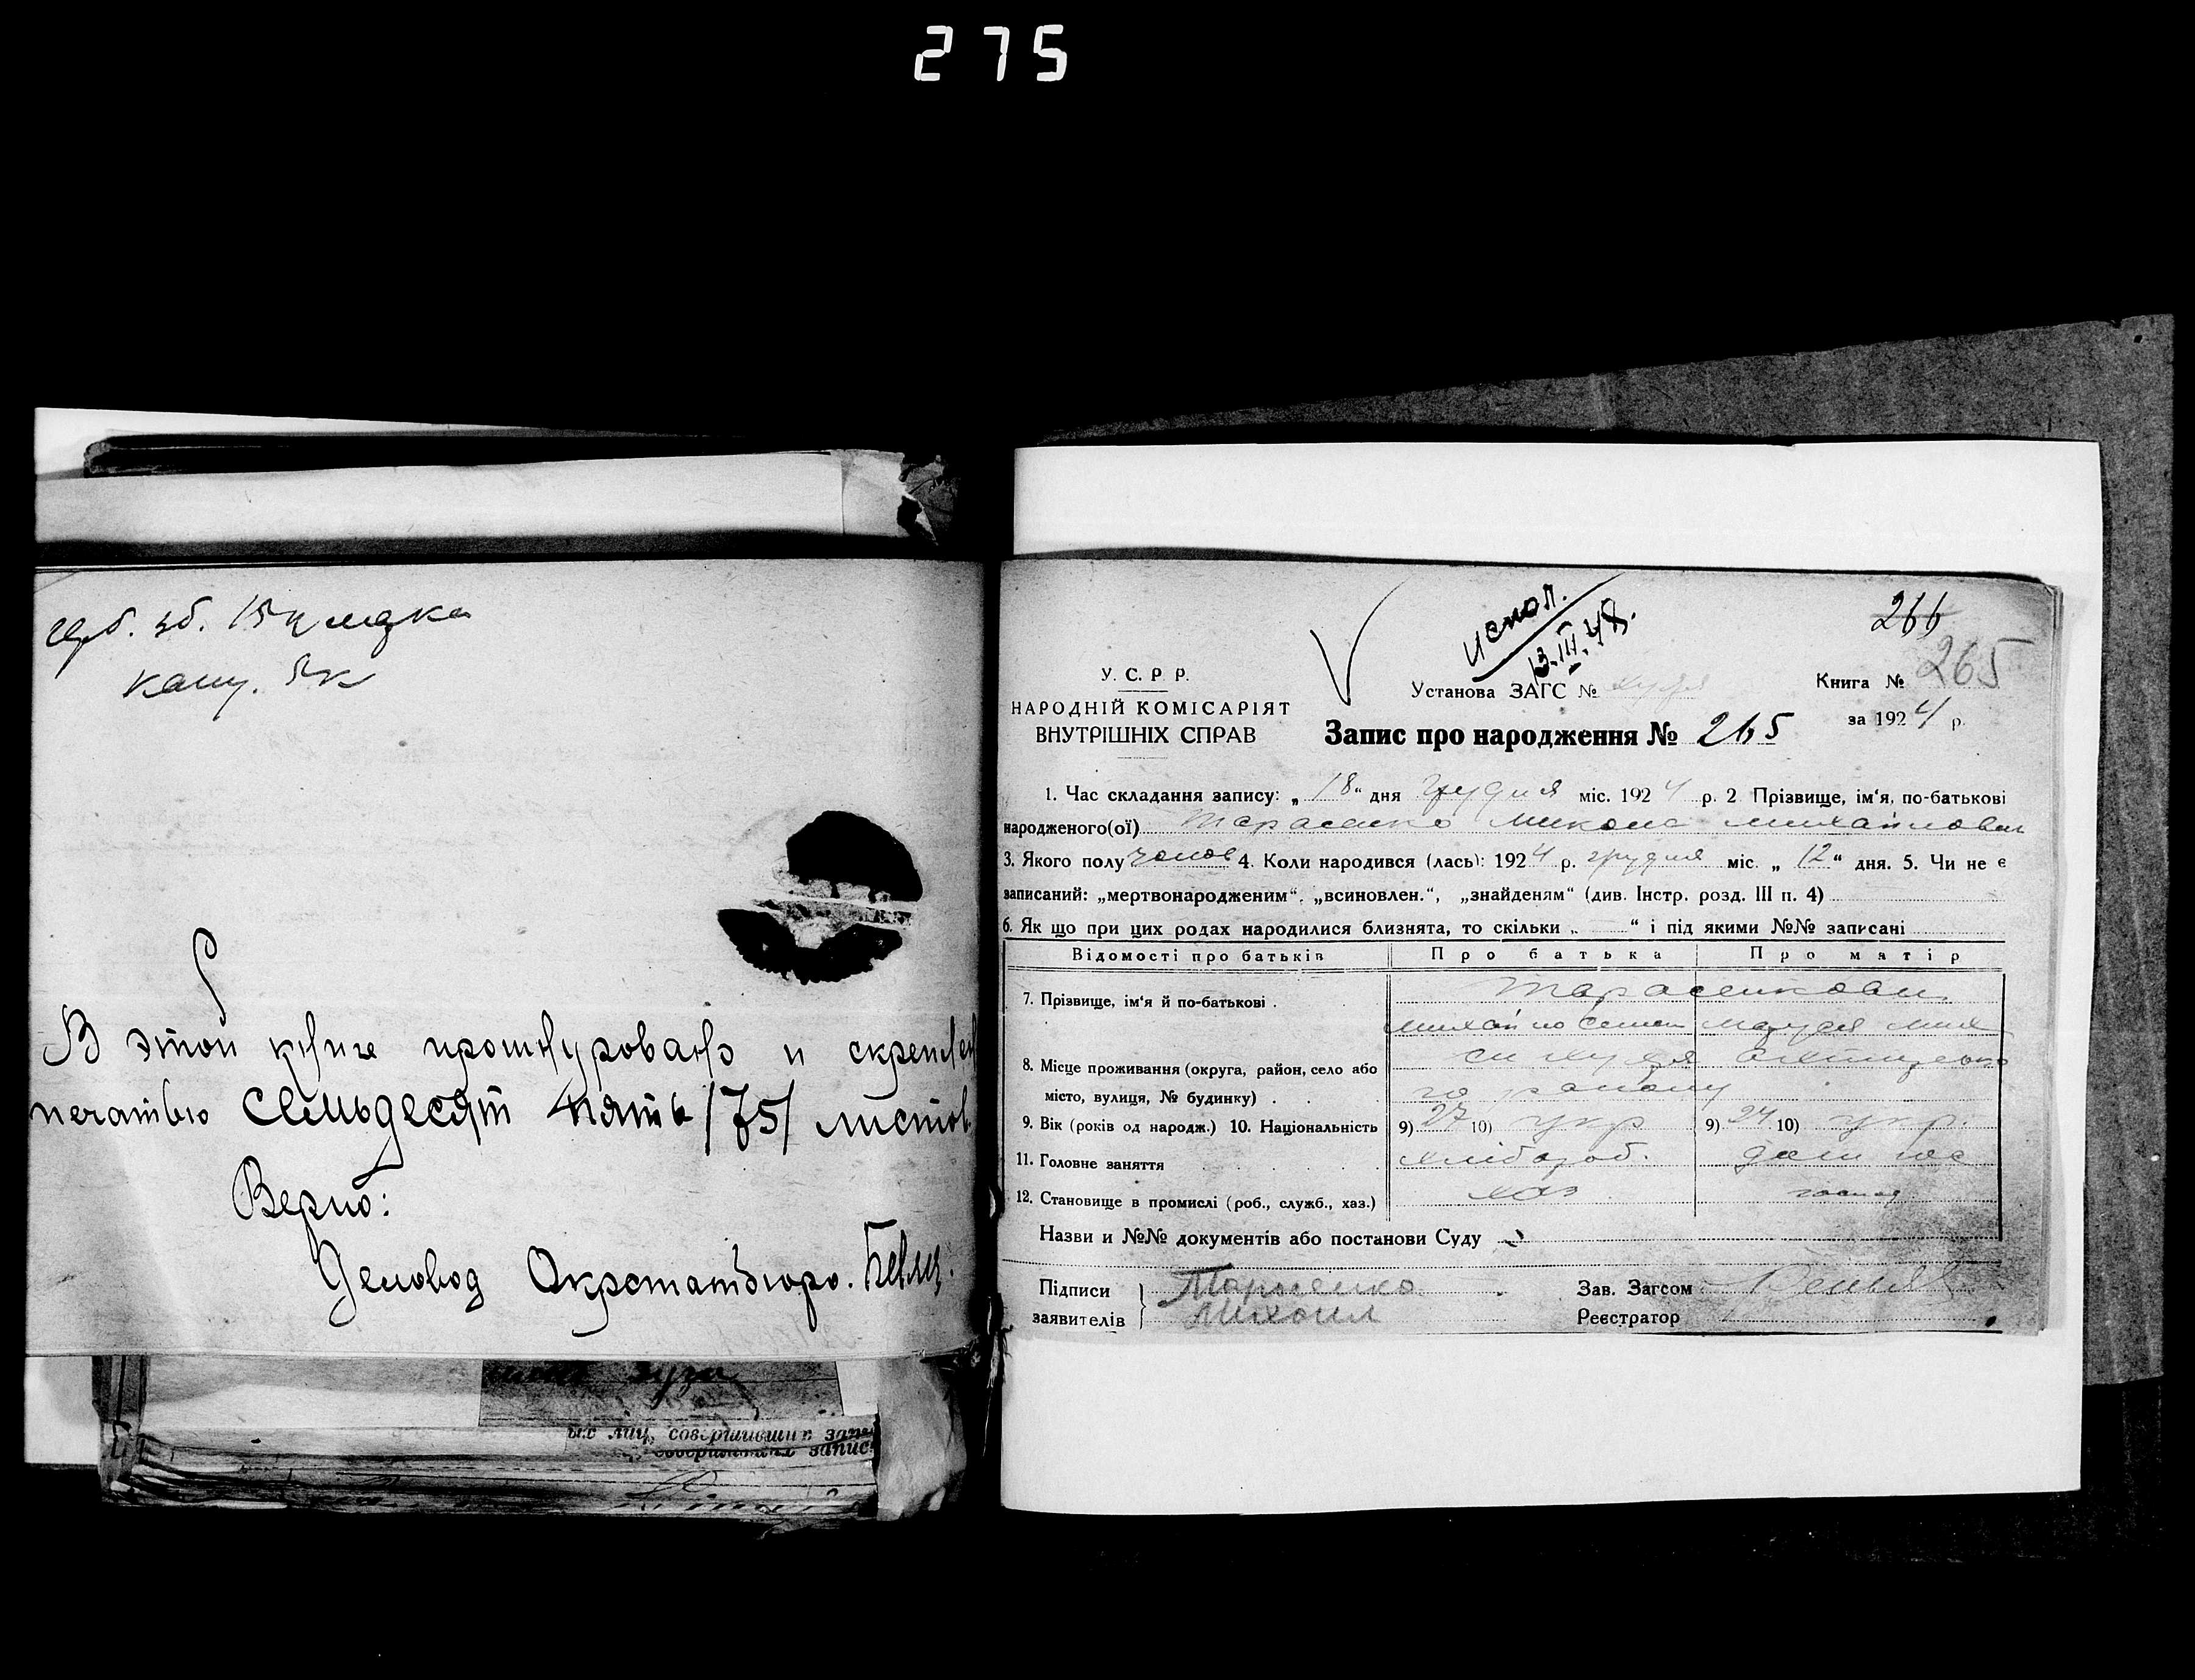 275
В этой книге прошнуровано и скреплен
печатью семьдесят пять /75/ листов
Верно:
Деловод Окрстатбюро.
ых лиц, совершивших запи
совершивших запис
испол.
13.III.48.
266
265
У. С. Р. Р.
НАРОДНІЙ КОМІСАРІЯТ
ВНУТРІШНІХ СПРАВ
Установа ЗАГС №
Книга №
за 1924 р.
Запис про народження № 265
1. Час складання запису: „18“ дня грудня міс. 1924 р. 2 Прізвище, ім‘я, по-батькові
народженого(ої) Тарасенко Микола Михайлович
3. Якого полу чолов 4. Коли народився (лась): 1924 р. грудня міс. „12“ дня. 5. Чи не є
записаний: „мертвонародженим“, „всиновлен.“, „знайденям“ (див. Інстр. розд. III п. 4)
6. Як що при цих родах народилися близнята, то скільки „ “ і під якими №№ записані
Відомості про батьків Про батька Про матір
7. Прізвище, ім‘я й по-батькові . Тарасенкови
Михайло Семен Маруся Мих
8. Місце проживання (округа, район, село або
місто, вулиця, № будинку) . го району
9. Вік (років од народж.) 10. Національність 9) 27 10) укр 9) 24 10) укр.
11. Головне заняття хлібороб. дом гос
12. Становище в промислі (роб., служб., хаз.) хаз господ
Назви и №№ документів або постанови Суду
Підписи Тарасенко Зав. Загсом
заявителів Михаил Реєстратор